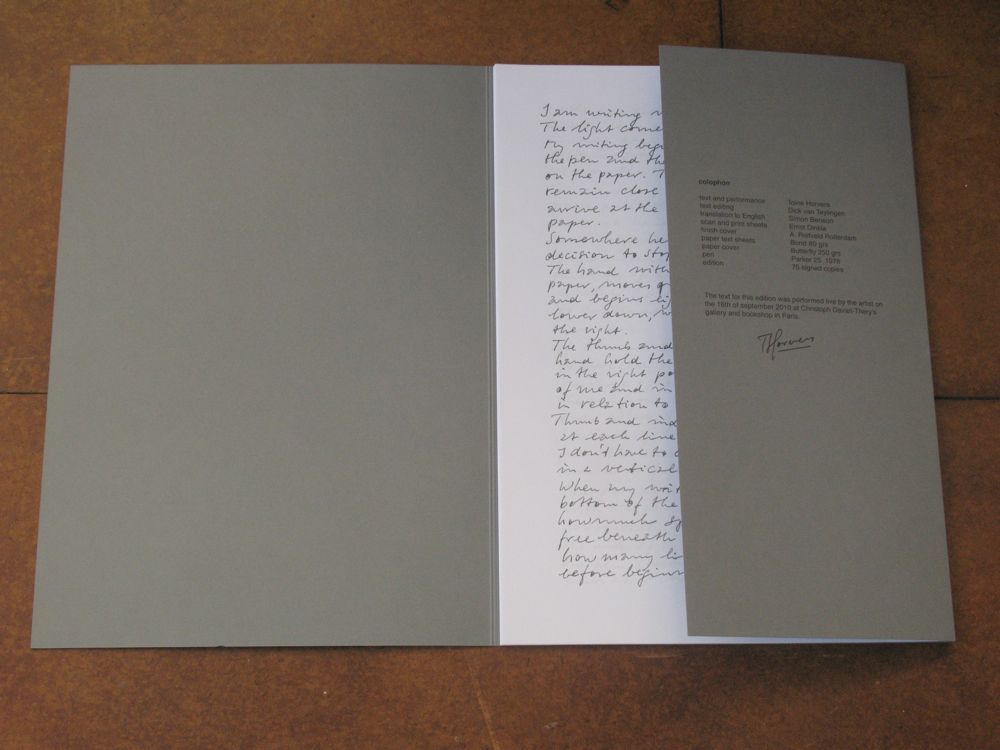 I am writing
The light come
My writing beg
the pen and th
on the paper. T
remain close
arrive at the
paper.
Somewhere he
decision to stop
The hand with
paper, moves
and begins
lower down,
the right.
The thumb and
hand hold the
in the right po
of me and in
in relation to
Thumb and ind
at each line
I don't have to
in a vertical
When my wri
bottom of the
how much sp
free beneath
how many li
before beginn
colophon
text and performance Toine Horvers
text editing Dick van Teylingen
translation to English Simon Benson
scan and print sheets Ernst Dinkla
finish cover A. Rietveld Rotterdam
paper text sheets Bond 80 grs
paper cover Butterfly 250 grs
pen Parker 25 1978
edition 75 signed copies
The text for this edition was performed live by the artist on
the 18th of september 2010 at Christoph Daviet-Thery's
gallery and bookshop in Paris.
THorvers